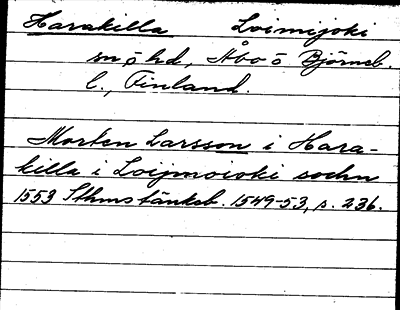 Harakilla Loimijoki
sn o hd, Åbo o Björneb.
l., Finland.
Morten Larsson i Hara-
killa i Loijmoioki sochn
1553 Sthms tänkeb. 1549-53, s. 236.